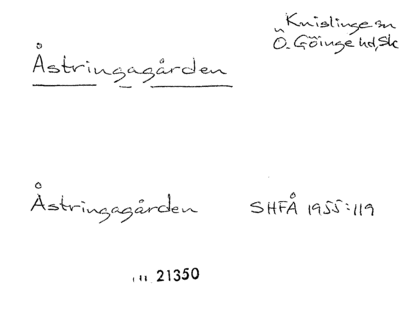 Knislinge sn
Ö. Göinge hd, Sk
Åstringagården
Åstringagården SHFÅ 1955:119
21350